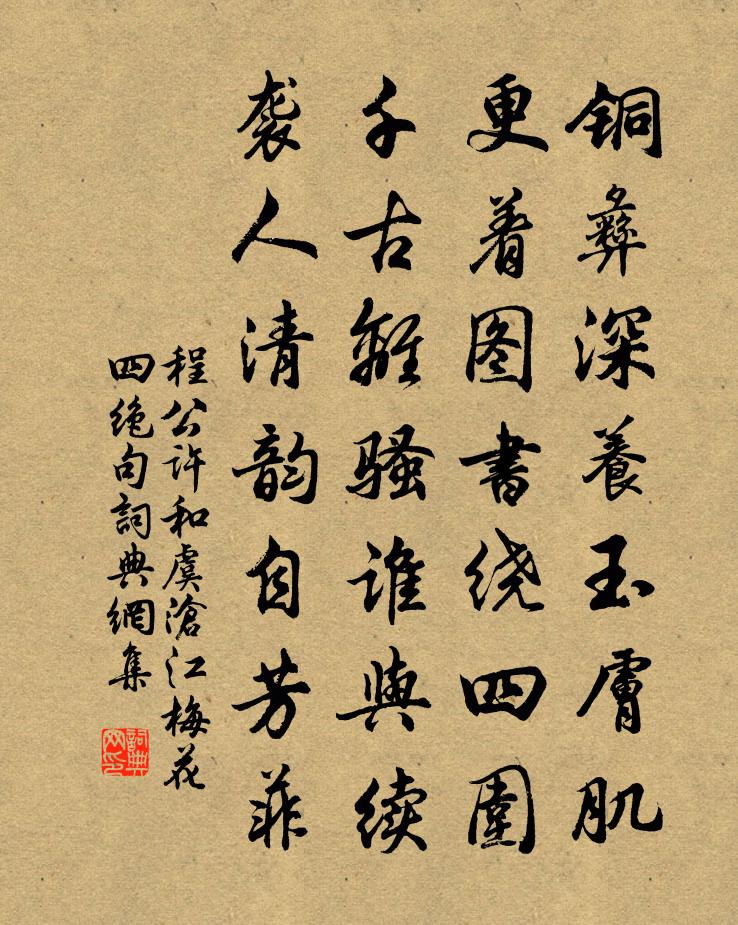 铜彝深養玉膚肌
更着图書绕四圍
千古離骚谁與续
袭人清韵自芳菲
程公许和虞滄江梅花
四绝句詞典網集
詞典网印